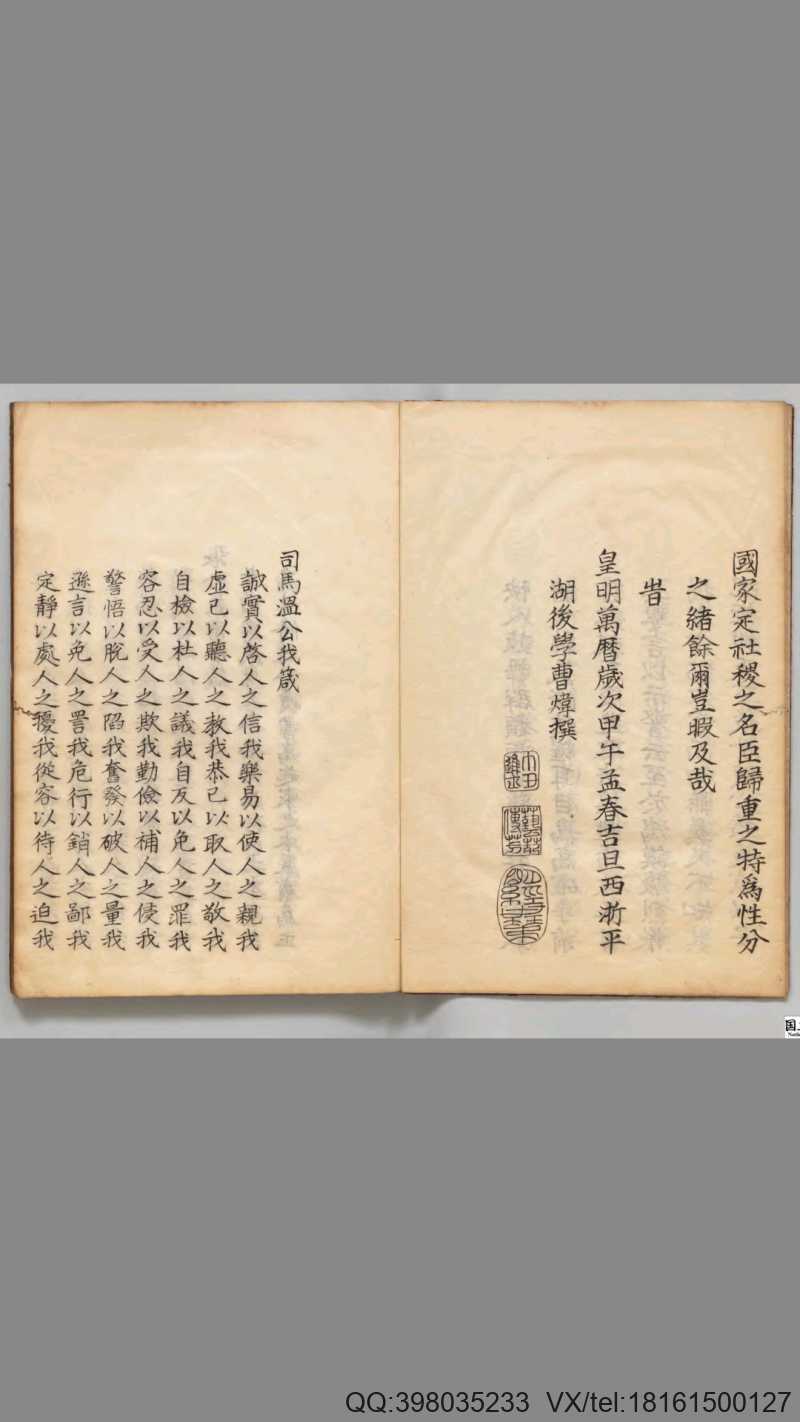 國家定社稷之名臣歸重之特爲性分
之緒餘爾豈暇及哉
旹
皇明萬曆歲次甲午孟春吉旦西浙平
湖後學曹煒撰
司馬溫公我箴
誠實以啓人之信我樂易以使人之親我
虛己以聽人之教我恭己以取人之敬我
自檢以杜人之議我自反以免人之罪我
容忍以受人之欺我勤儉以補人之侵我
警悟以脫人之陷我奮發以破人之量我
遜言以免人之詈我危行以銷人之鄙我
定靜以處人之擾我從容以待人之迫我
QQ:398035233 VX/tel:18161500127